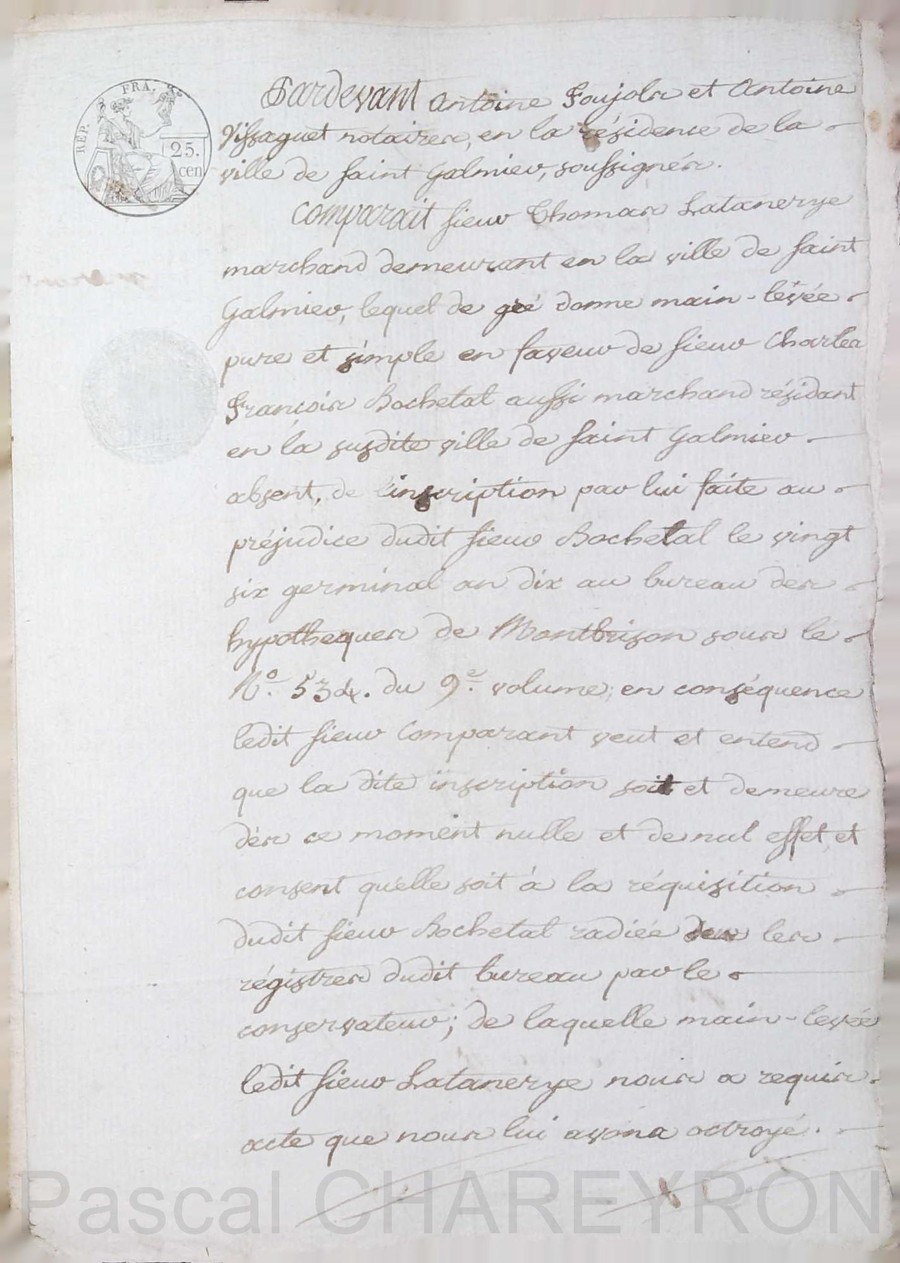 REP. FRA. 25. cen
Pardevant Antoine Poujols et Antoine
Vissaguet notaires, en la résidence de la
ville de saint Galmier, soussignés.
Comparait sieur Thomas Latanerye
marchand demeurant en la ville de saint
Galmier, lequel de gré donne main-levée
pure et simple en faveur de sieur Charles
François Bochetal aussi marchand résidant
en la susdite ville de saint Galmier
absent, de l'inscription par lui faite au
préjudice dudit sieur Bochetal le vingt
six germinal an dix au bureau des
hypotheques de Montbrison sous le
N.o 534. du 9.e volume; en conséquence
ledit sieur Comparant veut et entend
que la dite inscription soit et demeure
dès ce moment nulle et de nul effet, et
consent qu'elle soit à la réquisition
dudit sieur Bochetal radiée des les
régistres dudit bureau par le
conservateur; de laquelle main-levée
ledit sieur Latanerye nous a requis
acte que nous lui avons octroyé.
Pascal CHAREYRON